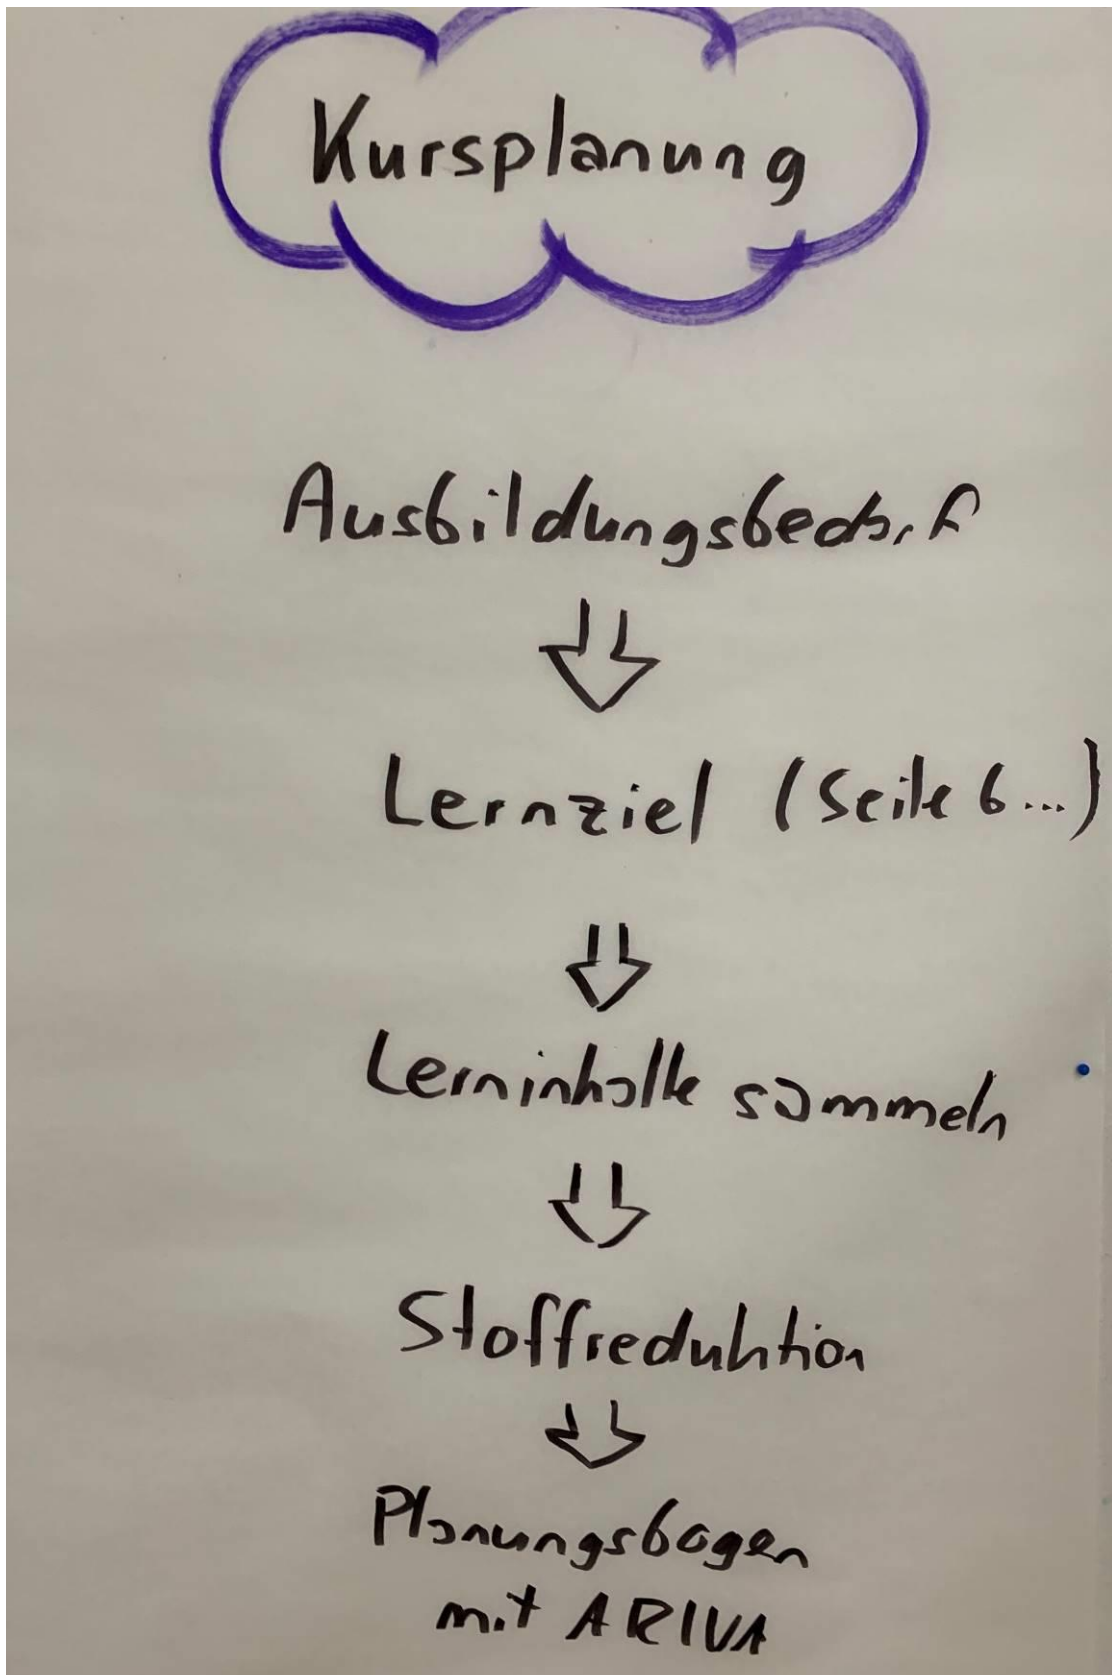 Kursplanung
Ausbildungsbedarf
Lernziel (Seite 6...)
Lerninhalte sammeln
Stoffreduktion
Planungsbogen
mit ARIVA